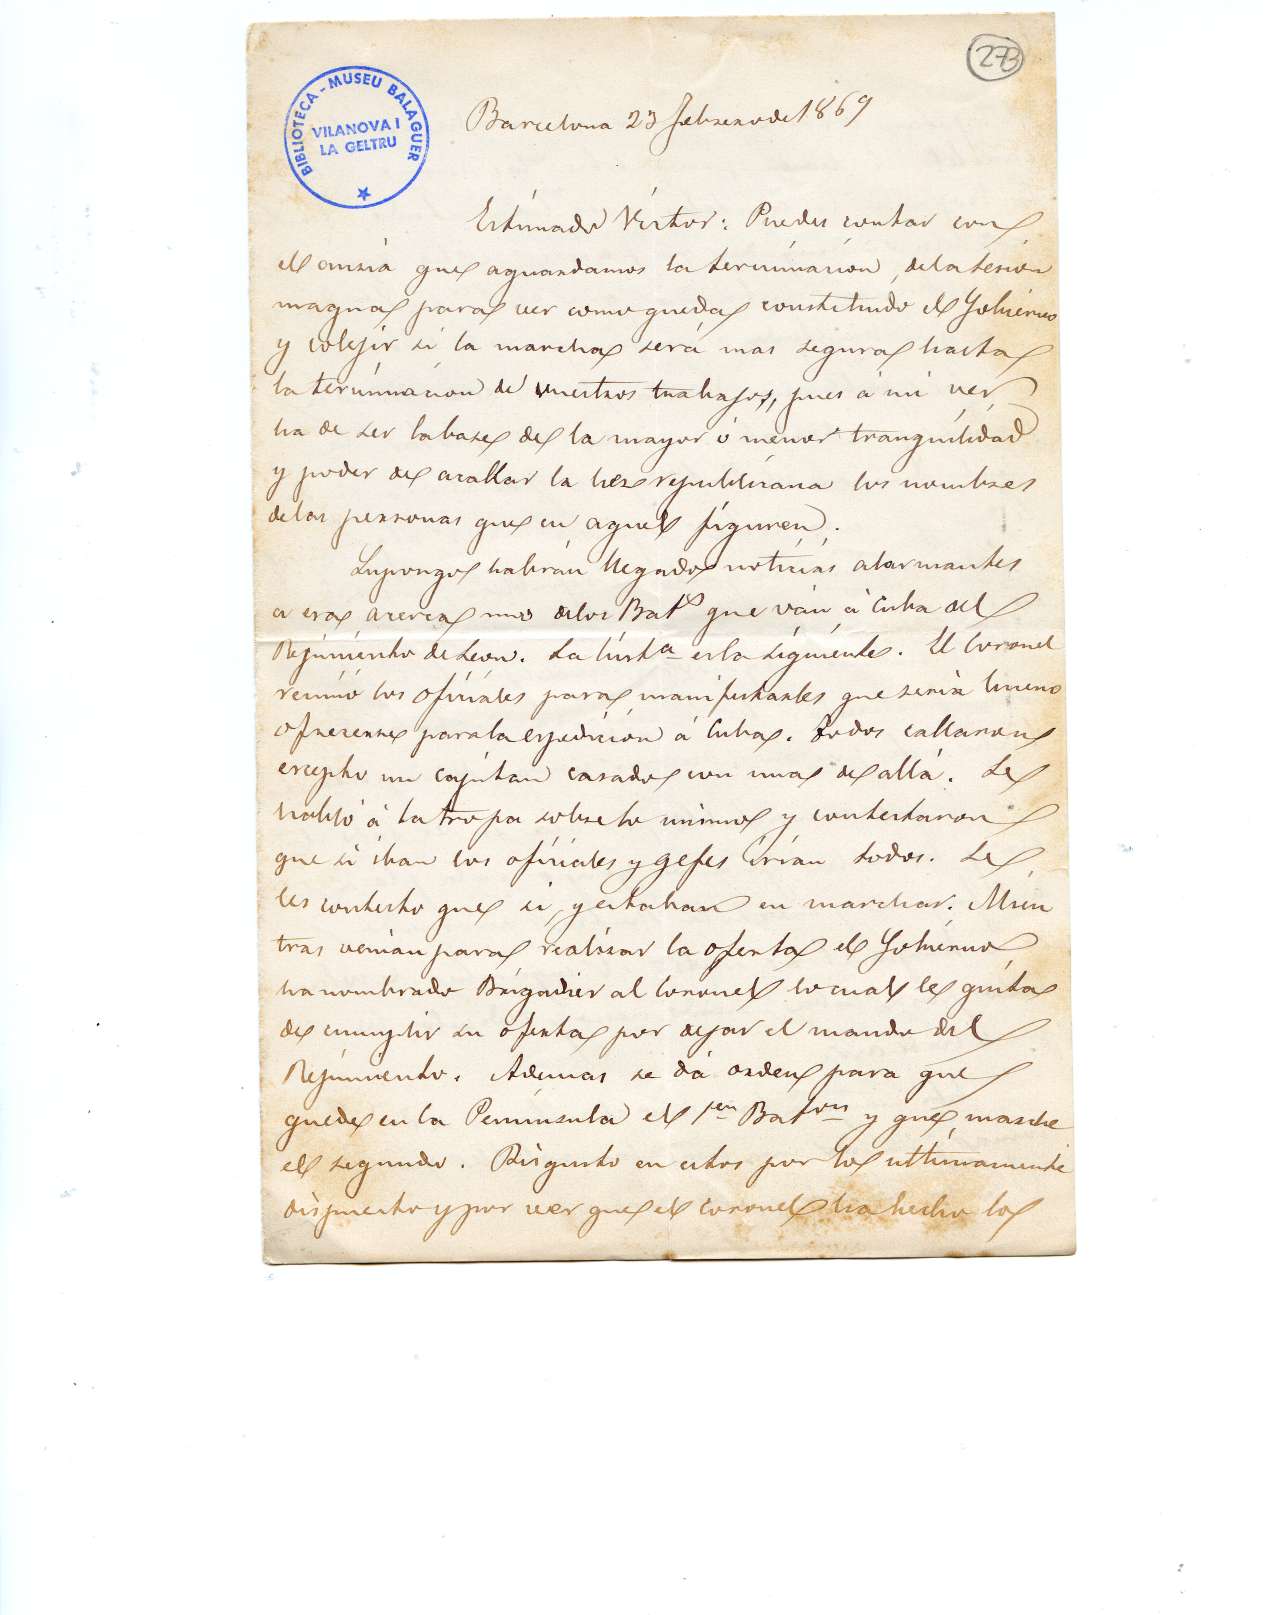 273
BIBLIOTECA - MUSEU BALAGUER
VILANOVA I
LA GELTRU
Barcelona 23 Febrero de 1869
Estimado Víctor: Puedes contar con
el ansia que aguardamos la terminacion, de la sesion
magna para ver como queda constituido el Gobierno
y colejir si la marcha será mas segura hasta
la terminacion de vuestros trabajos, pues á mi ver
ha de ser la base de la mayor ó menor tranquilidad
y poder de acallar la hez republicana los nombres
de las personas que en aquel figuren.
Supongo habrán llegado noticias alarmantes
a esa acerca uno de los Bat.s que ván á Cuba del
Rejimiento de Leon. La hist.a es la siguiente. El Coronel
reunió los oficiales para manifestarles que seria bueno
ofrecerse para la espedicion á Cuba. Todos callaron
escepto un capitan casado con una de allá. Se
habló á la tropa sobre lo mismo y contestaron
que si iban los oficiales y gefes irian todos. Se
les contestó que si, y estaban en marchar. Mien
tras venian para realizar la oferta el Gobierno
ha nombrado Brigadier al Coronel lo cual le quita
de cumplir su oferta por dejar el mando del
Rejimiento. Ademas se dá orden para que
quede en la Peninsula el 1er Baton y que marche
el segundo. Disgusto en estos por lo ultimamente
dispuesto y por ver que el coronel ha hecho lo